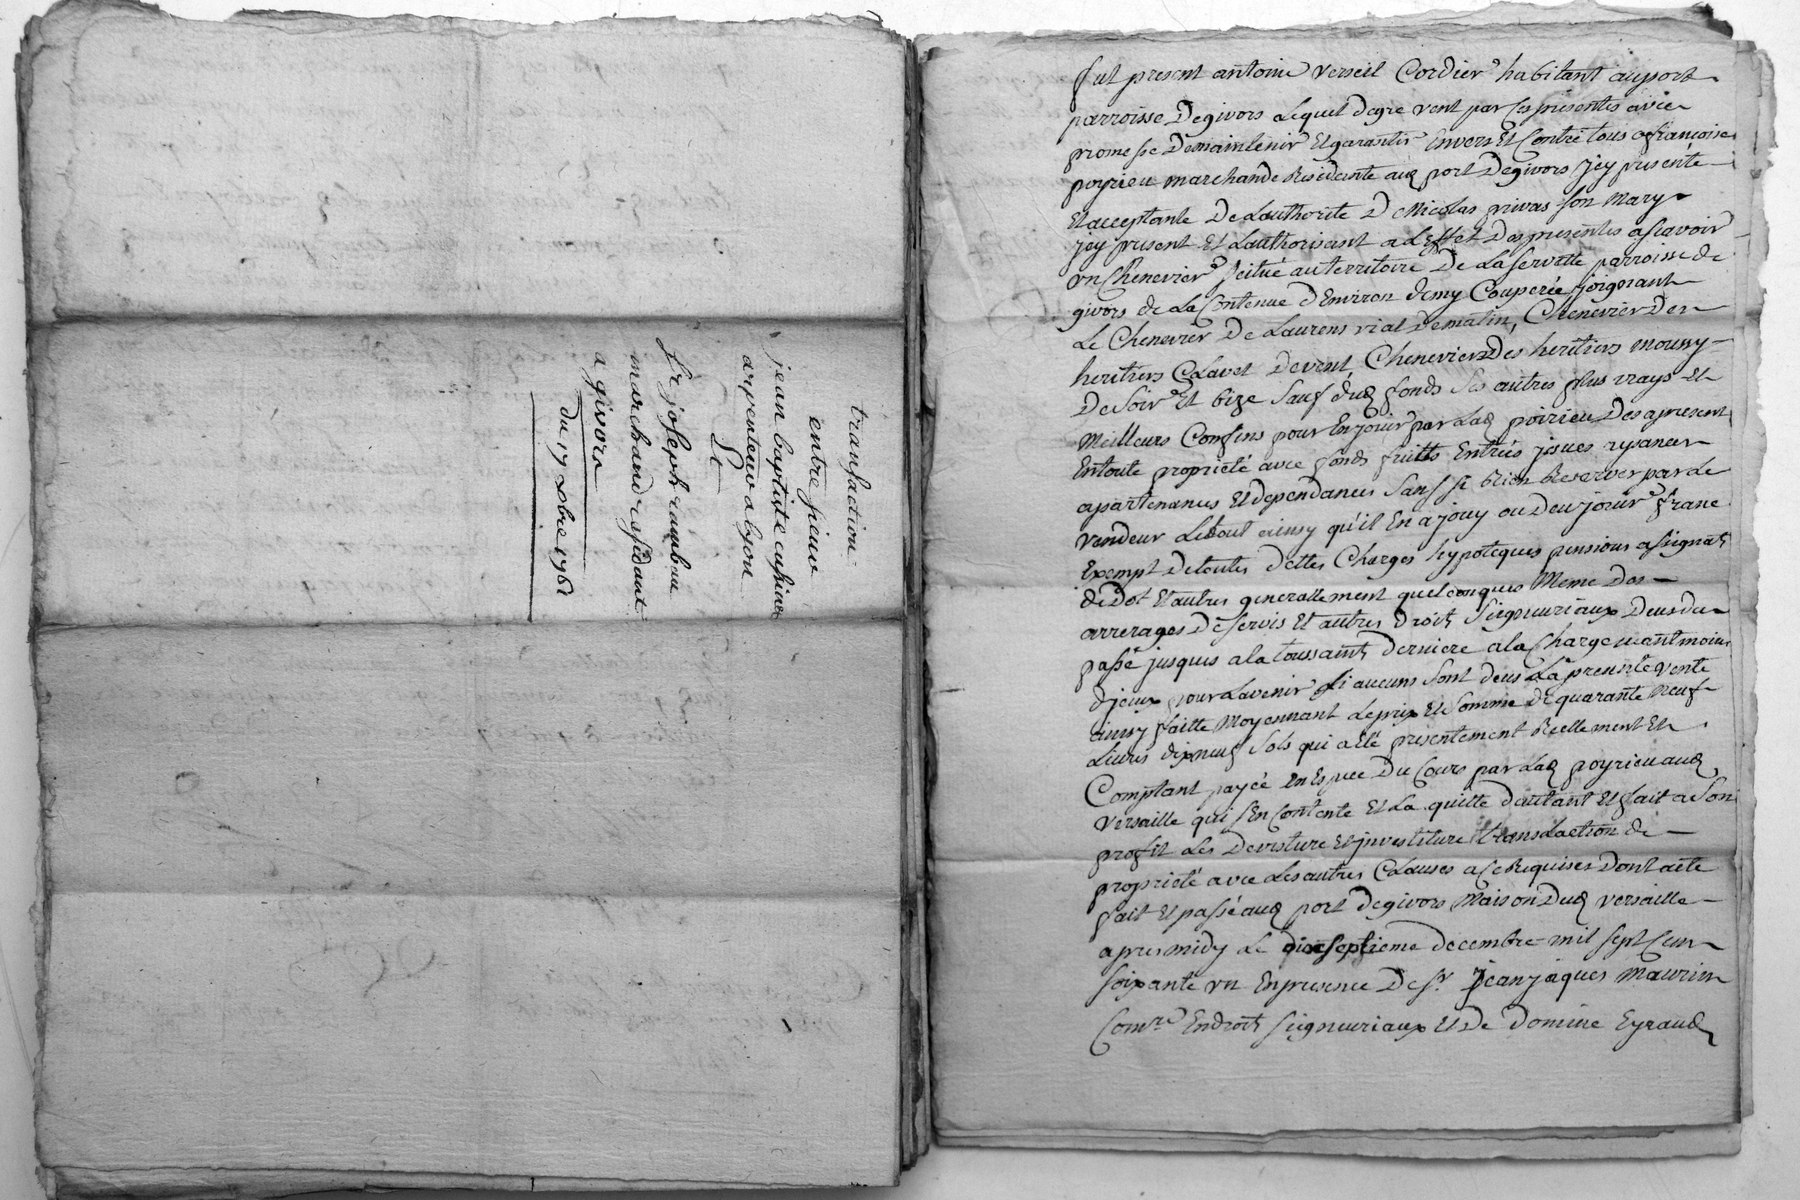 transaction
entre sieur
jean baptiste
arpenteur a lyon
Et
Sr joseph raimbau
marchand residant
a givors
du 17 xbre 1761
fut present antoine verseil Cordier habitant au port
parroisse Degivors Lequel degre vent par ses presentes avec
promesse Demaintenir Et garantir Envers Et Contre tous a francoise
poyrieu marchande Residante aud port Degivors jcy presente
Et acceptante De Lauthorite De Nicolas privas son Mary
jcy present Et Lauthorisant a Leffet Des presentes ascavoir
vn Chenevier scitué au territoire De La servette parroisse de
givors de La Contenue d'Environ demy Couperée joignant
Le Chenevier De Laurens vial De matin, Chenevier Des
heritiers Clavet De vent, Chenevier Des heritiers mouny
De soir Et bize Sauf dud fonds ses autres plus vrays Et
Meilleurs Confins pour En jouir par Lad poirieu Des apresent
En toute proprieté avec fonds fruits Entrées jssues aysances
apartenances Et dependances Sans se Rien Reserver par Le
vendeur Letout ainsy qu'il En a jouy ou deu jouir franc
Exempt De toutes dettes Charges hypoteques pensions assignats
de Dot Et autres generallement quelconques Meme Des
arrerages De servis Et autres Droits Seigneuriaux Deus du
passé jusques a la toussaint derniere a la Charge neantmoins
d'jceux pour Lavenir si aucuns sont deus La presente vente
ainsy faitte Moyennant Le prix Et Somme De quarante Neuf
Livres dix neuf Sols qui a Eté presentement Reellement Et
Comptant payée En Espece Du Cours par Lad poyrieu aud
Versaille qui s'En Contente Et La quitte d'autant Et fait a Son
profit Les Devesture Et jnvestiture translaction de
proprieté avec Les autres Clauses a ce Requises Dont acte
fait Et passé aud port degivors Maison Dud versaille
apres midy Le dixseptieme decembre mil sept Cens
soixante vn En presence De Sr. Jean jaques Maurin
Comre. En droits seigneuriaux Et De Domine Eyraud